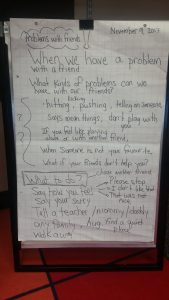 Problems with friends
November 9, 2017
When we have a problem
with a friend
What kinds of problems can we
have with our friends?
hitting, pushing, telling on someone,
Says mean things, don't play with
you
If you feel like playing
with another friend,
When someone is not your favourite
What if your friends don't help you?
What to do?
have another friend
Say how you feel
Please stop
I don't like that
Say your sorry
That was not
nice
Tell a teacher/mommy/daddy
family, hug, find a quiet
place
Walk away